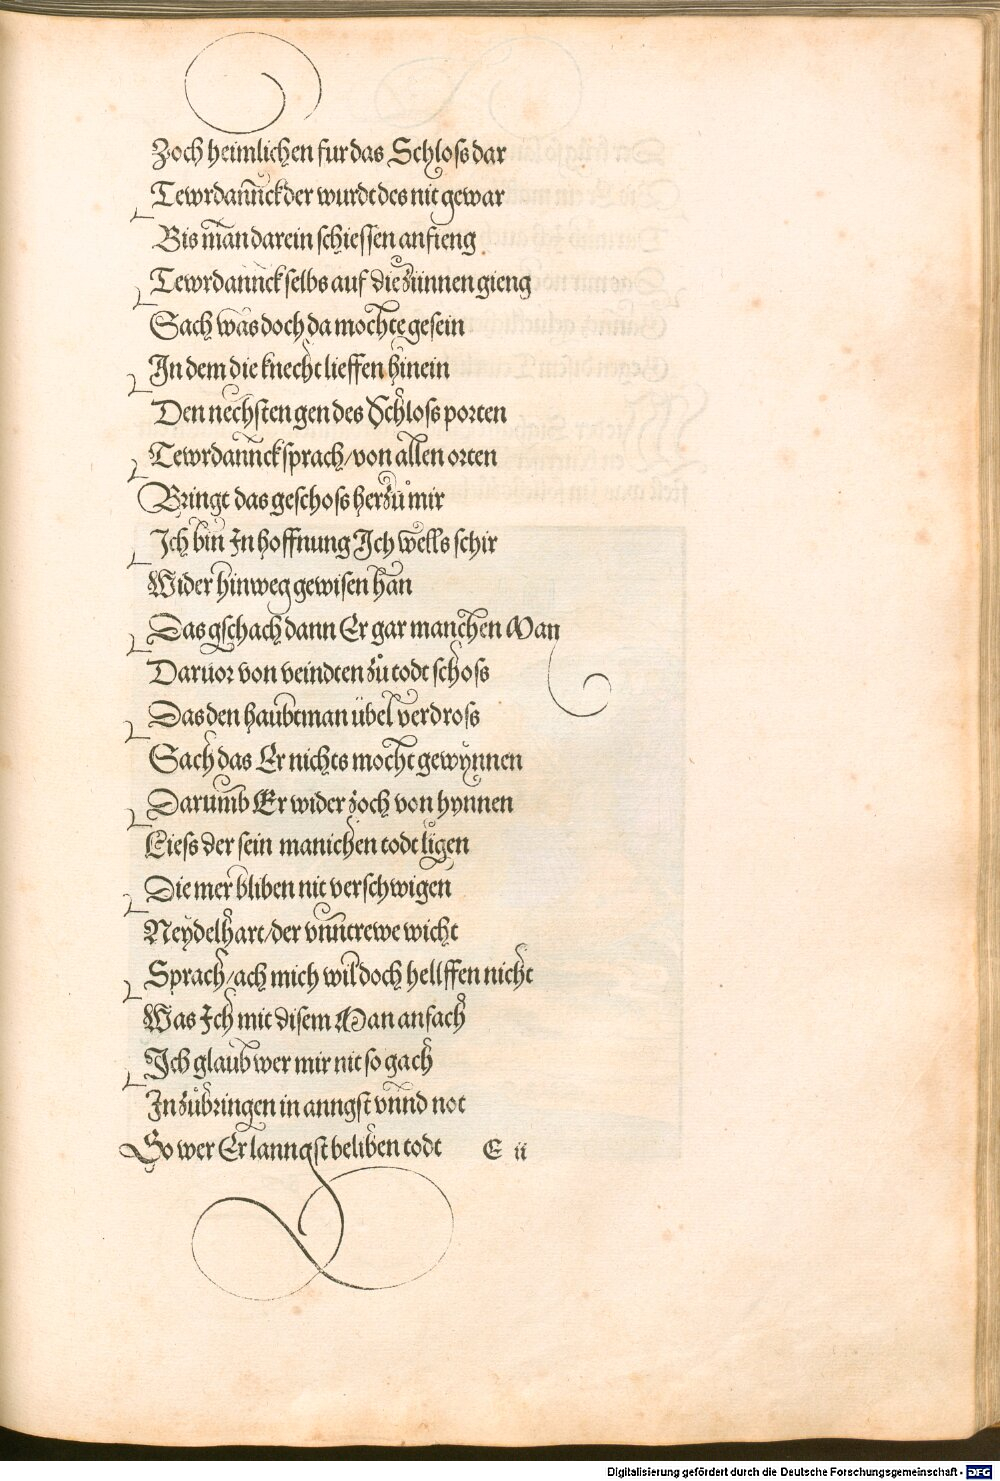 Zoch heimlichen fur das Schloſs dar
Tewrdannck der wurdt des nit gewar
Bis man darein ſchieſſen anfieng
Tewrdannck ſelbs auf die zünnen gieng
Sach was doch da mochte geſein
In dem die knecht lieffen hinein
Den nechſten gen des Schloſs porten
Tewrdannck ſprach/von allen orten
Bringt das geſchoſs herzů mir
Ich bin In hoffnung Ich wells ſchir
Wider hinweg gewiſen han
Das gſchach dann Er gar manchen Man
Daruor von veindten zů todt ſchoſs
Das den haubtman übel verdroſs
Sach das Er nichts mocht gewynnen
Darumb Er wider zoch von hynnen
Lieſs der ſein manichen todt ligen
Die mer bliben nit verſchwigen
Neydelhart/der vnntrewe wicht
Sprach/ach mich wil doch hellffen nicht
Was Ich mit diſem Man anfach
Ich glaub wer mir nit ſo gach
In zůbringen in anngſt vnnd not
So wer Er lanngſt beliben todt E ii
Digitalisierung gefördert durch die Deutsche Forschungsgemeinschaft - DFG